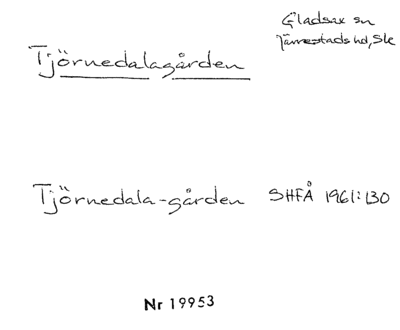 Gladsax sn
Järrestads hd, Sk
Tjörnedalagården
Tjörnedala-gården SHFÅ 1961:130
Nr 19953